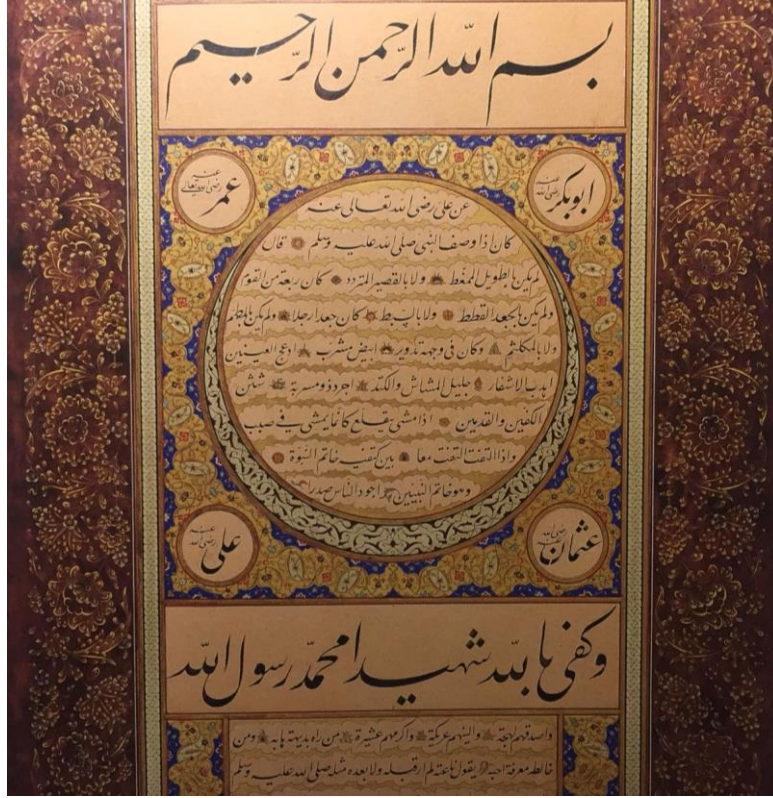 بسم الله الرحمن الرحيم
ابوبكر رضى الله عنه
عمر رضى الله تعالى عنه
عن على رضى الله تعالى عنه
كان اذا وصف النبى صلى الله عليه وسلم قال
لم يكن بالطويل الممغط ولا بالقصير المتردد كان ربعة من القوم
ولم يكن بالجعد القطط ولا بالسبط كان جعدا رجلا ولم يكن بالمطهم
ولا بالمكلثم وكان فى وجهه تدوير ابيض مشرب ادعج العينين
اهدب الاشفار جليل المشاش والكتد اجرد ذو مسربة شثن
الكفين والقدمين اذا مشى تقلع كانما يمشى فى صبب
واذا التفت التفت معا بين كتفيه خاتم النبوة
وهو خاتم النبيين اجود الناس صدرا
عثمان رضى الله عنه
على رضى الله عنه
وكفى بالله شهيدا محمد رسول الله
واصدقهم لهجة والينهم عريكة واكرمهم عشيرة من راه بديهة هابه ومن
خالطه معرفة احبه يقول ناعته لم ار قبله ولا بعده مثله صلى الله عليه وسلم